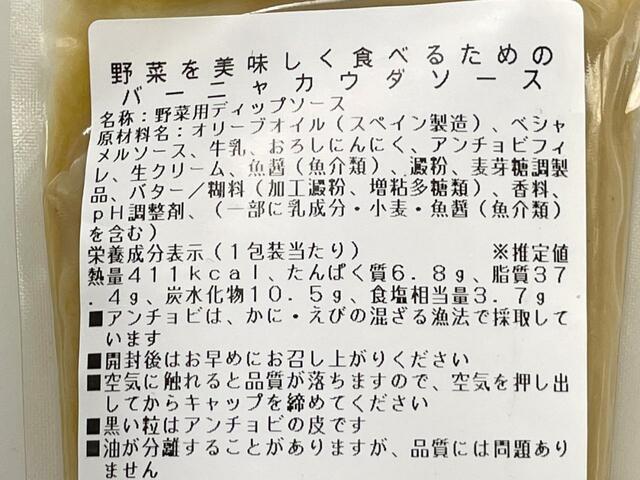 野菜を美味しく食べるための
バーニャカウダソース
名称：野菜用ディップソース
原材料名：オリーブオイル（スペイン製造）、ベシャ
メルソース、牛乳、おろしにんにく、アンチョビフィ
レ、生クリーム、魚醤（魚介類）、澱粉、麦芽糖調製
品、バター／糊料（加工澱粉、増粘多糖類）、香料、
ｐＨ調整剤、（一部に乳成分・小麦・魚醤（魚介類）
を含む）
栄養成分表示（１包装当たり） ※推定値
熱量４１１ｋｃａｌ、たんぱく質６．８ｇ、脂質３７
．４ｇ、炭水化物１０．５ｇ、食塩相当量３．７ｇ
■アンチョビは、かに・えびの混ざる漁法で採取して
います
■開封後はお早めにお召し上がりください
■空気に触れると品質が落ちますので、空気を押し出
してからキャップを締めてください
■黒い粒はアンチョビの皮です
■油が分離することがありますが、品質には問題あり
ません